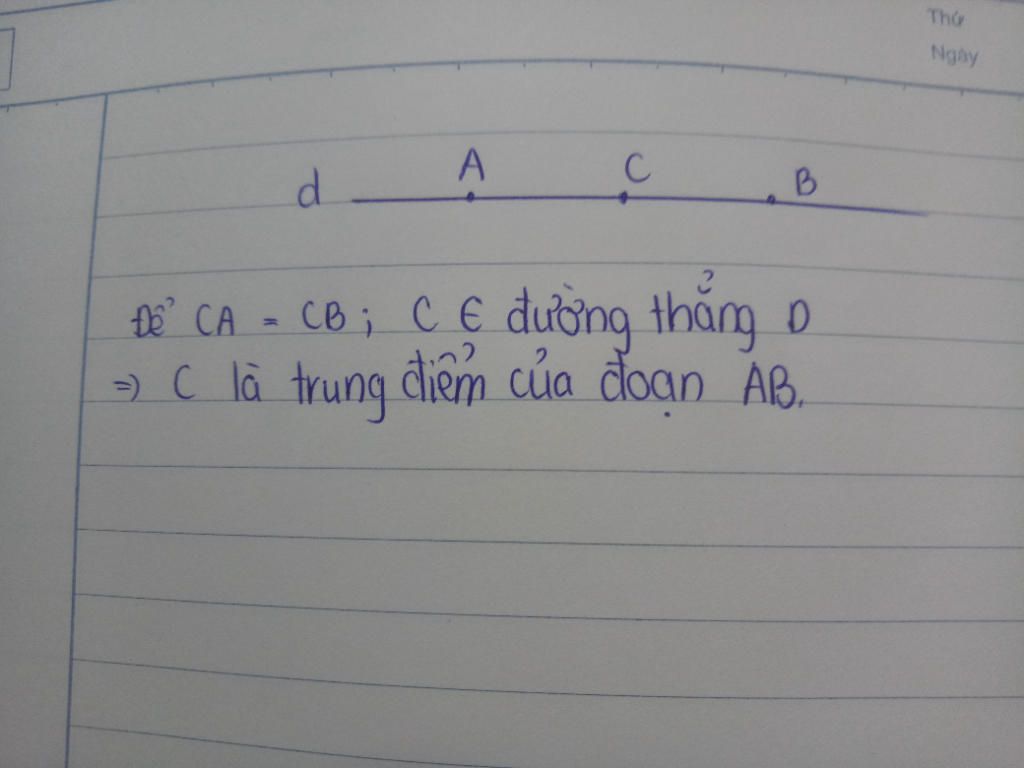 Thứ
Ngày
A C B
d
Để CA = CB; C ∈ đường thẳng D
=> C là trung điểm của đoạn AB.